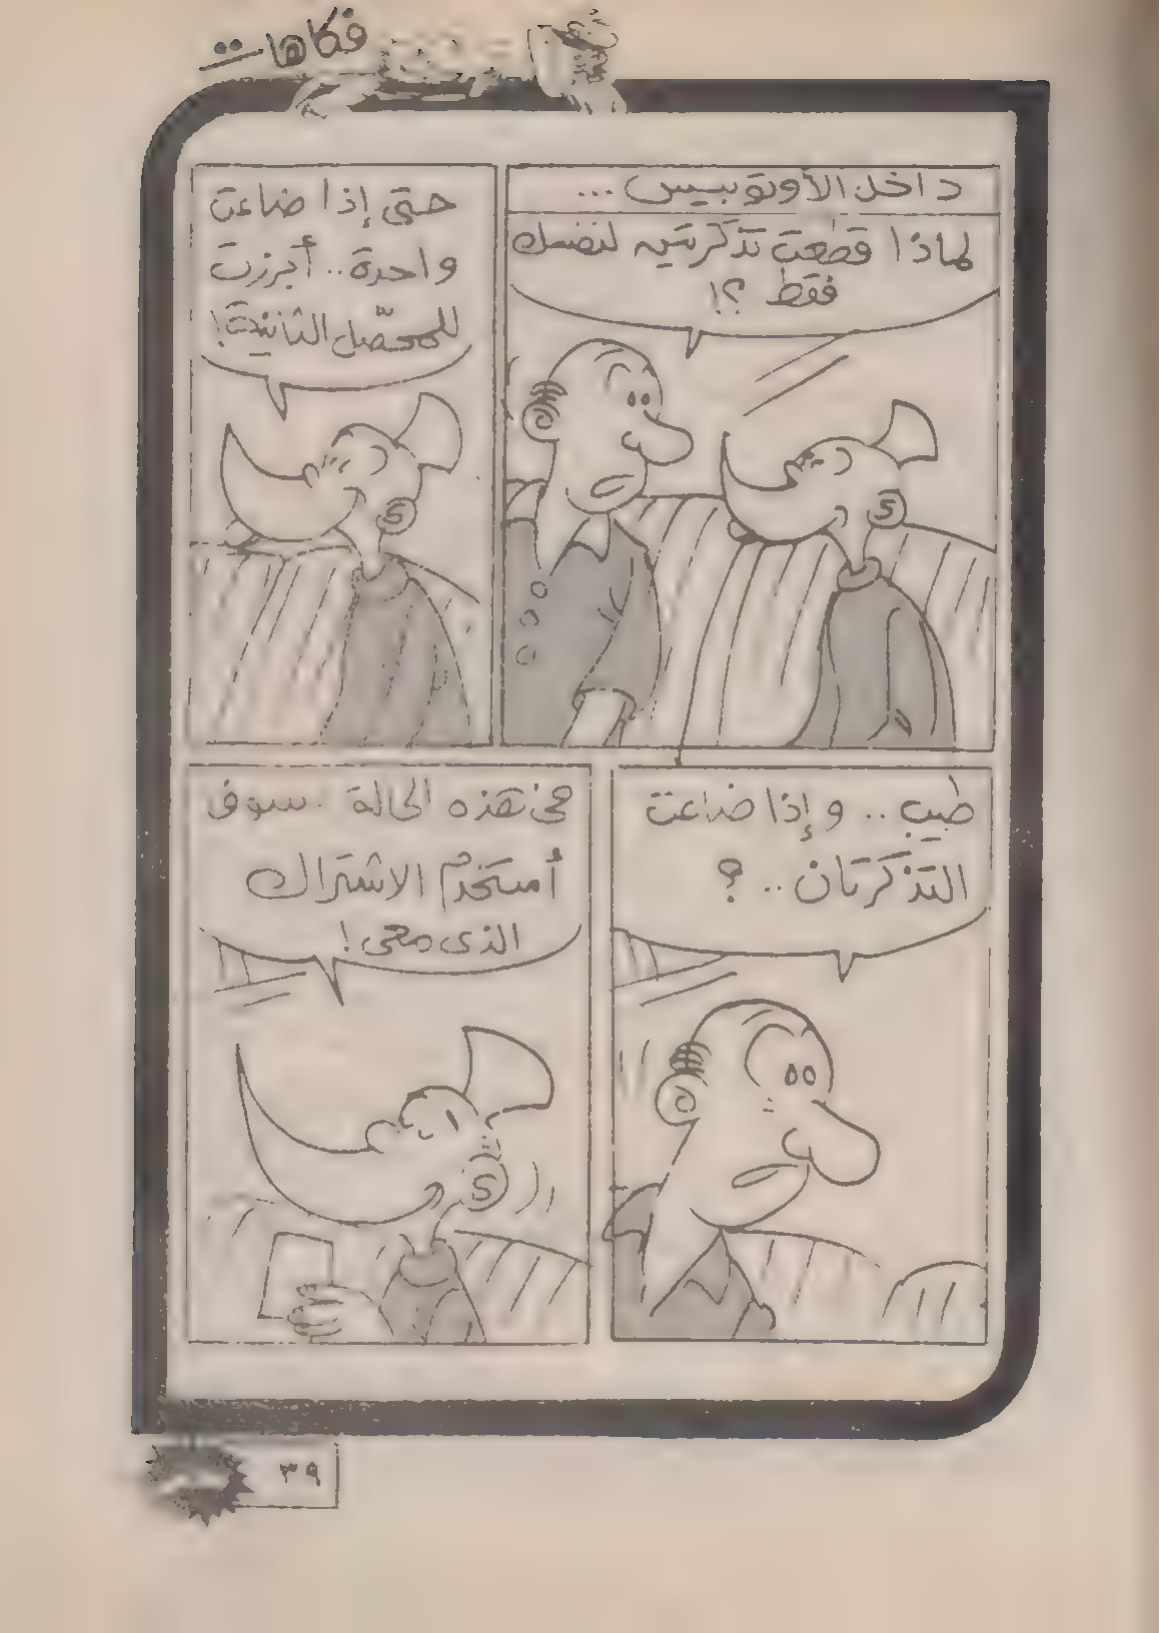 فكاهات
داخل الأوتوبيس ...
لماذا قطعت تذكرتين لنفسك
فقط ؟!
حتى إذا ضاعت
واحدة .. أبرزت
للمحصّل الثانية !
طيب .. وإذا ضاعت
التذكرتان .. ؟
فى هذه الحالة . سوف
أستخدم الاشتراك
الذى معى !
٣٩